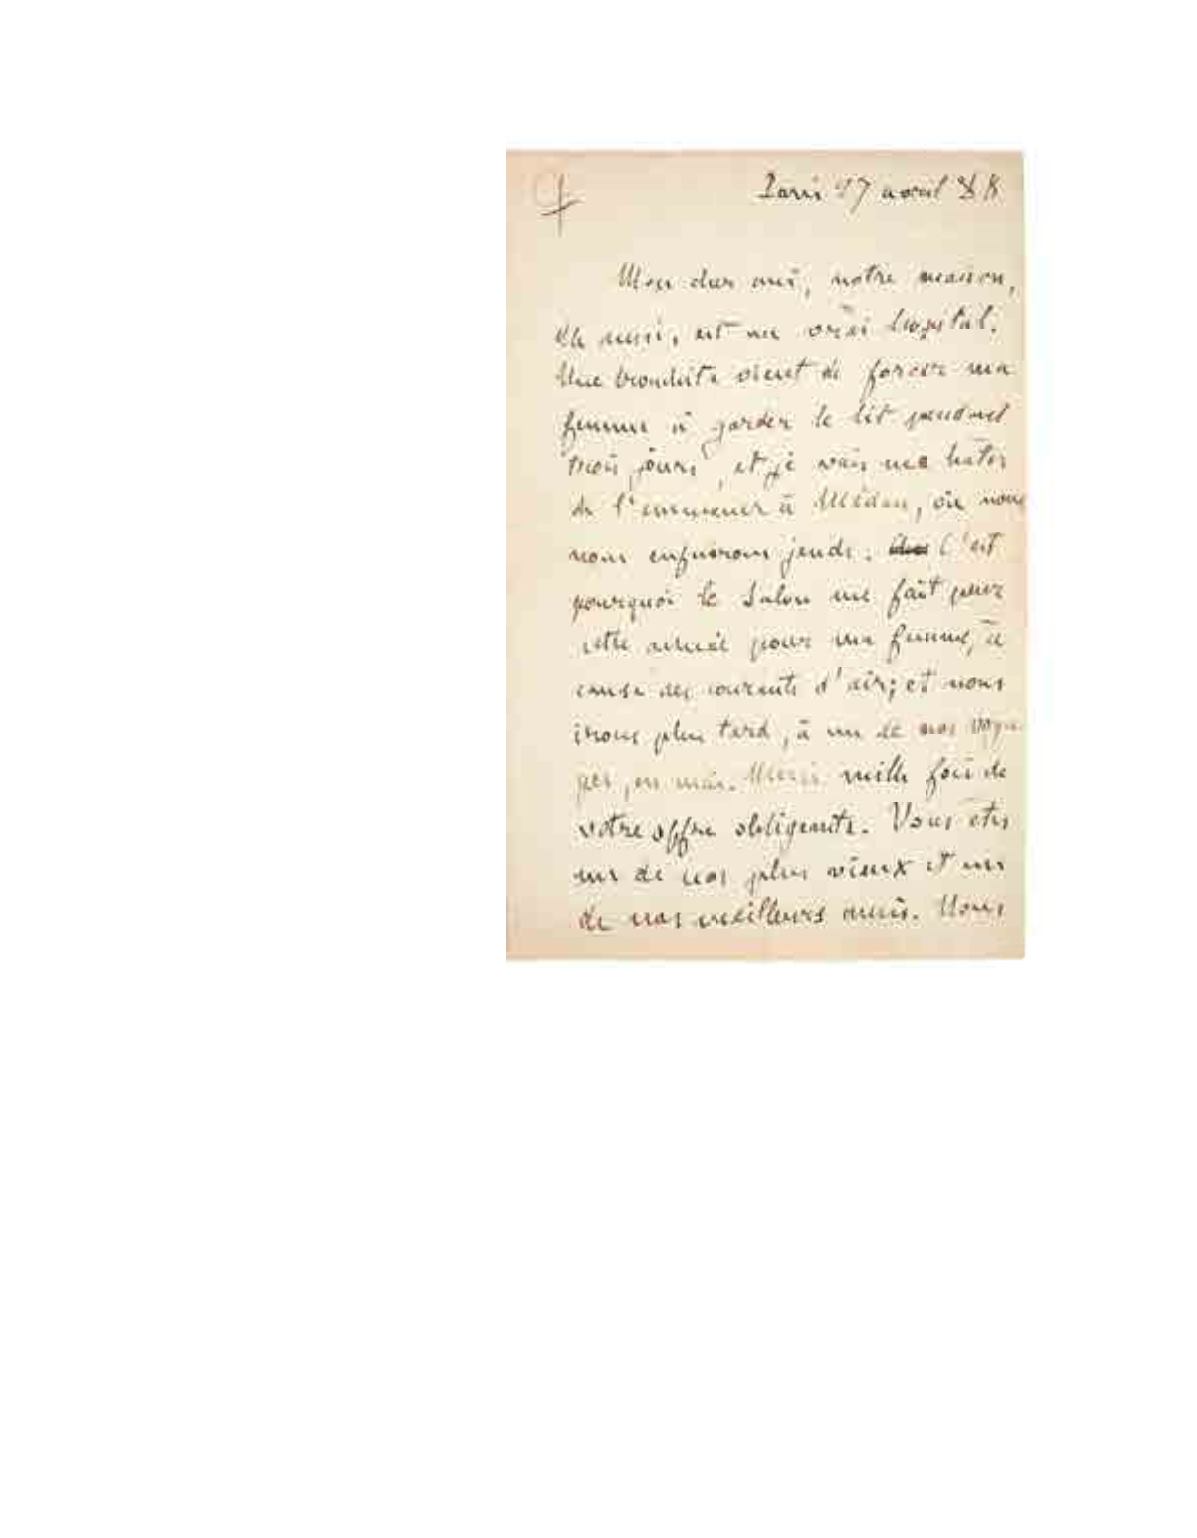 Paris 27 avril 88
Mon cher ami, notre maison,
elle aussi, est un vrai hôpital.
Une bronchite vient de forcer ma
femme à garder le lit pendant
trois jours, et je vais me hâter
de l'emmener à Médan, où nous
nous enfuirons jeudi. C'est
pourquoi le Salon me fait peur
cette année pour ma femme, à
cause des courants d'air; et nous
irons plus tard, à un de nos voya-
ges, en mai. Merci mille fois de
votre offre obligeante. Vous êtes
un de nos plus vieux et un
de nos meilleurs amis. Nous